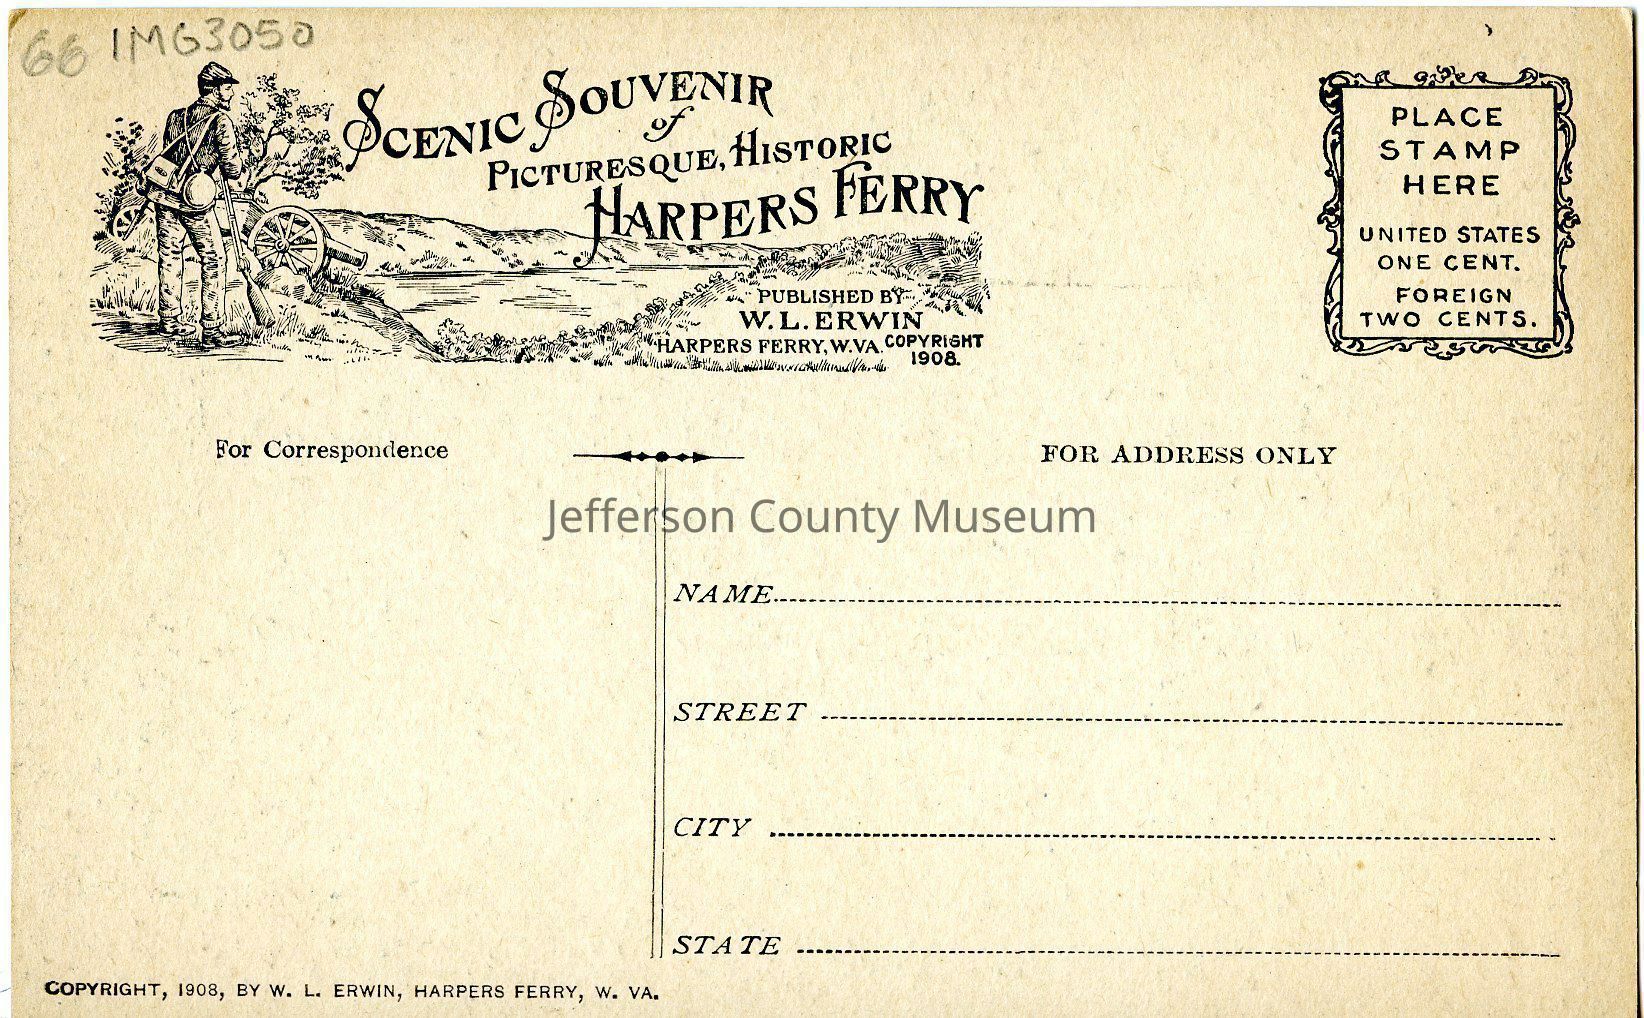 66 IMG3050
SCENIC SOUVENIR
of
PICTURESQUE, HISTORIC
HARPERS FERRY
PUBLISHED BY
W. L. ERWIN
HARPERS FERRY, W. VA. COPYRIGHT
1908.
PLACE
STAMP
HERE
UNITED STATES
ONE CENT.
FOREIGN
TWO CENTS.
For Correspondence
FOR ADDRESS ONLY
Jefferson County Museum
NAME
STREET
CITY
STATE
COPYRIGHT, 1908, BY W. L. ERWIN, HARPERS FERRY, W. VA.